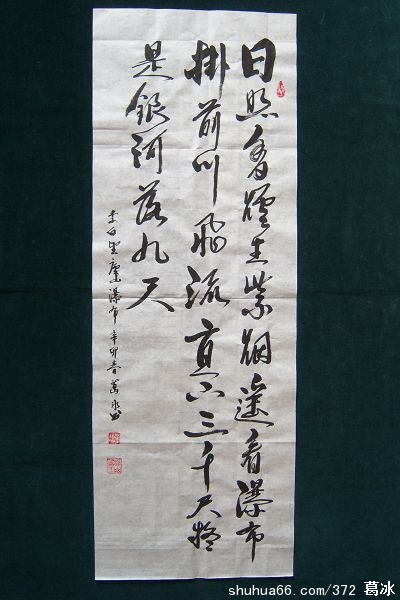 日照香爐生紫烟遥看瀑布
掛前川飛流直下三千尺疑
是銀河落九天
李白望廬山瀑布 辛卯春葛冰书
shuhua66.com/372 葛冰